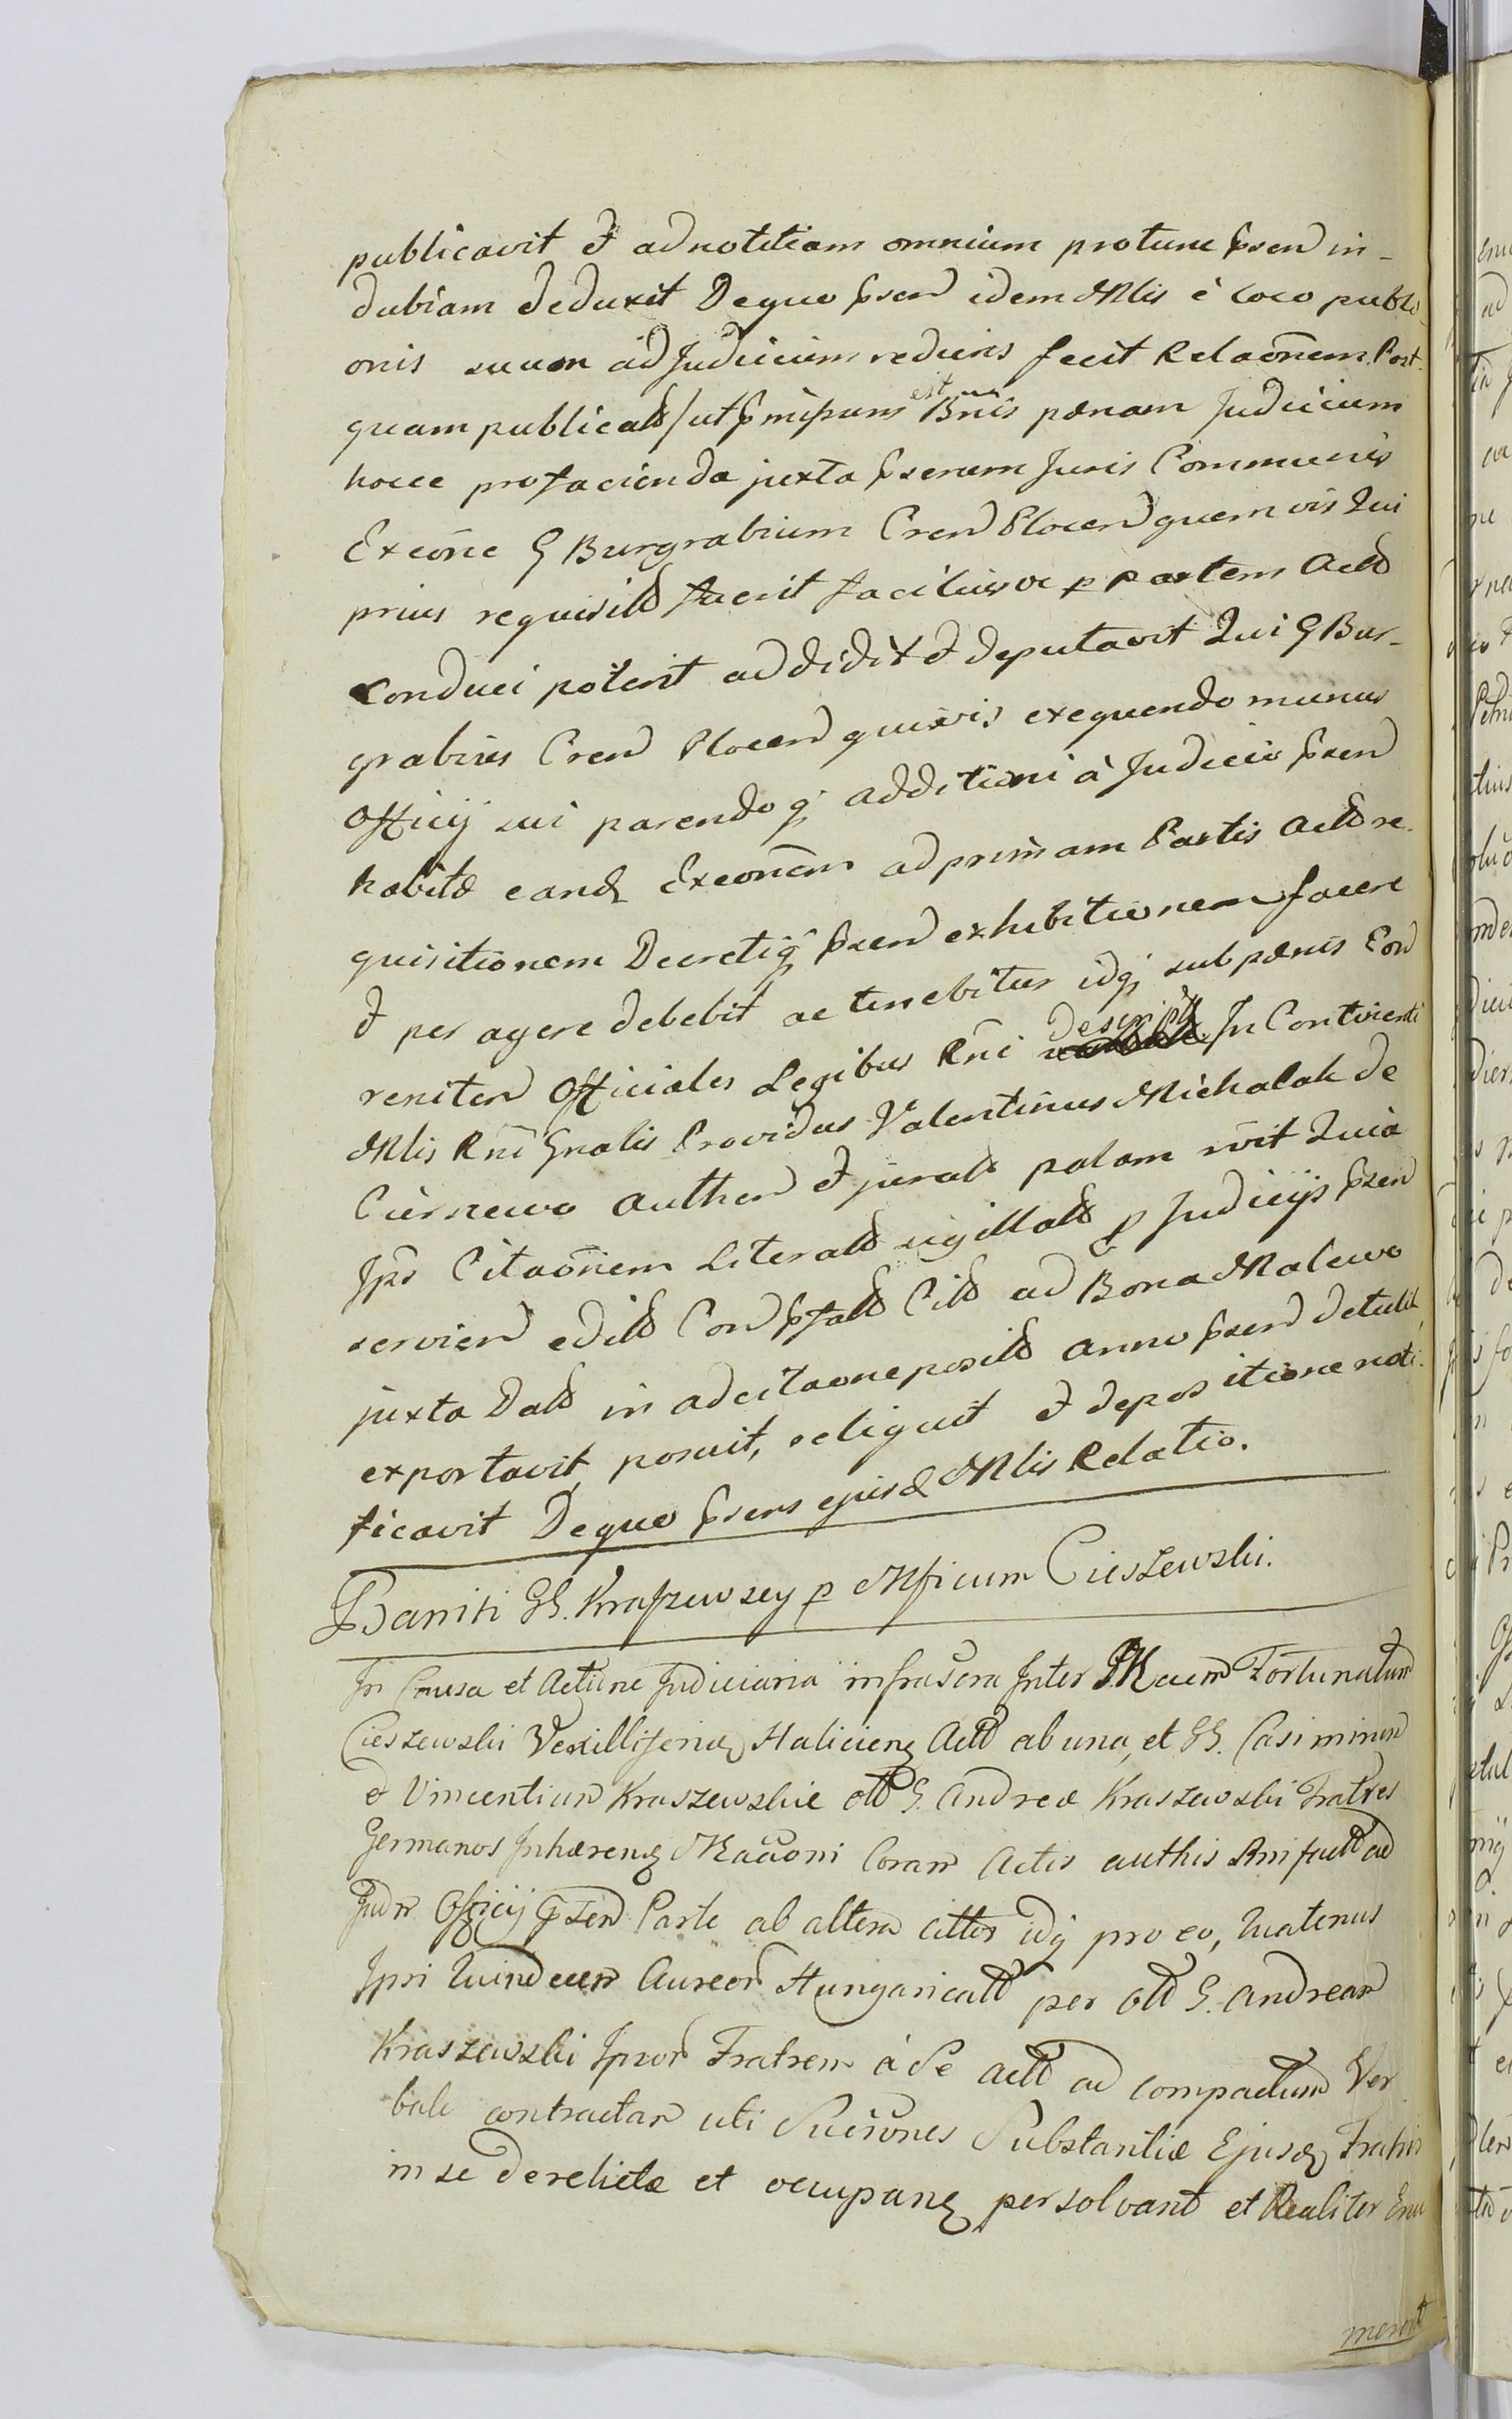 publicavit et ad notitiam omnium protunc psen in-
dubiam deduxit De quo psen idem Mlis è loco public-
onis suum ad Judicium rediens fecit Relaõnem. Post-
quam publicatt / ut pmissum est Bnis pœnam Judicium
hocce pro facienda juxta psenem Juris Communis
Execõne G Burgrabium Cren Plocen quemvis Qui
prius requisitt fuerit faciliusve p partem Actt
conduci poterit addidit et deputavit Qui G Bur-
grabius Cren Plocen quivis exequendo munus
Officij sui parendo q additioni à Judicio psen
habitæ eand Execõnem ad primam Partis Actt re-
quisitionem Decretiq psen exhibitionem facere
et per agere debebit ac tenebitur idq sub pœnis Con
reniten Officiales Legibus Rni descriptt In Continenti
Mlis Rni Gnalis Providus Valentinus Michalak de
Ciernewo authen et juratt palam rvit Quia
Ips Citaõnem Literatt sigillatt p Judicijs psen
servien editt Con pfatt Citt ad Bona Malewo
juxta Datt in ad citaone positt anno psen detulit,
exportavit, posuit, reliquit et depositione noti-
ficavit De quo psens ejusd Mlis Relatio.
Banniti GG. Kraszewscy p Mficum Cieszewski.
In Causa et Actione Judiciaria infrascra Inter M Fortunatum
Cieszewski Vexilliferum Haliciens Actt ab una, et GG. Casimirum
et Vincentium Kraszewskie ott G. Andreæ Kraszewski Fratres
Germanos Inhæren Maõoni Coram Actis authis Rni factt ad
Judm Officij psen Parte ab altera Cittos idq pro eo, Quatenus
Ipsi Quindecem Aureor Hungaricatt per ott G. Andream
Kraszewski Ipsor Fratrem à Se Actt ad compactum Ver-
bale contractam uti Sucores Substantiæ Ejusd Fratris
in se derelictæ et ocupan persolvant et Realiter Enu
merent